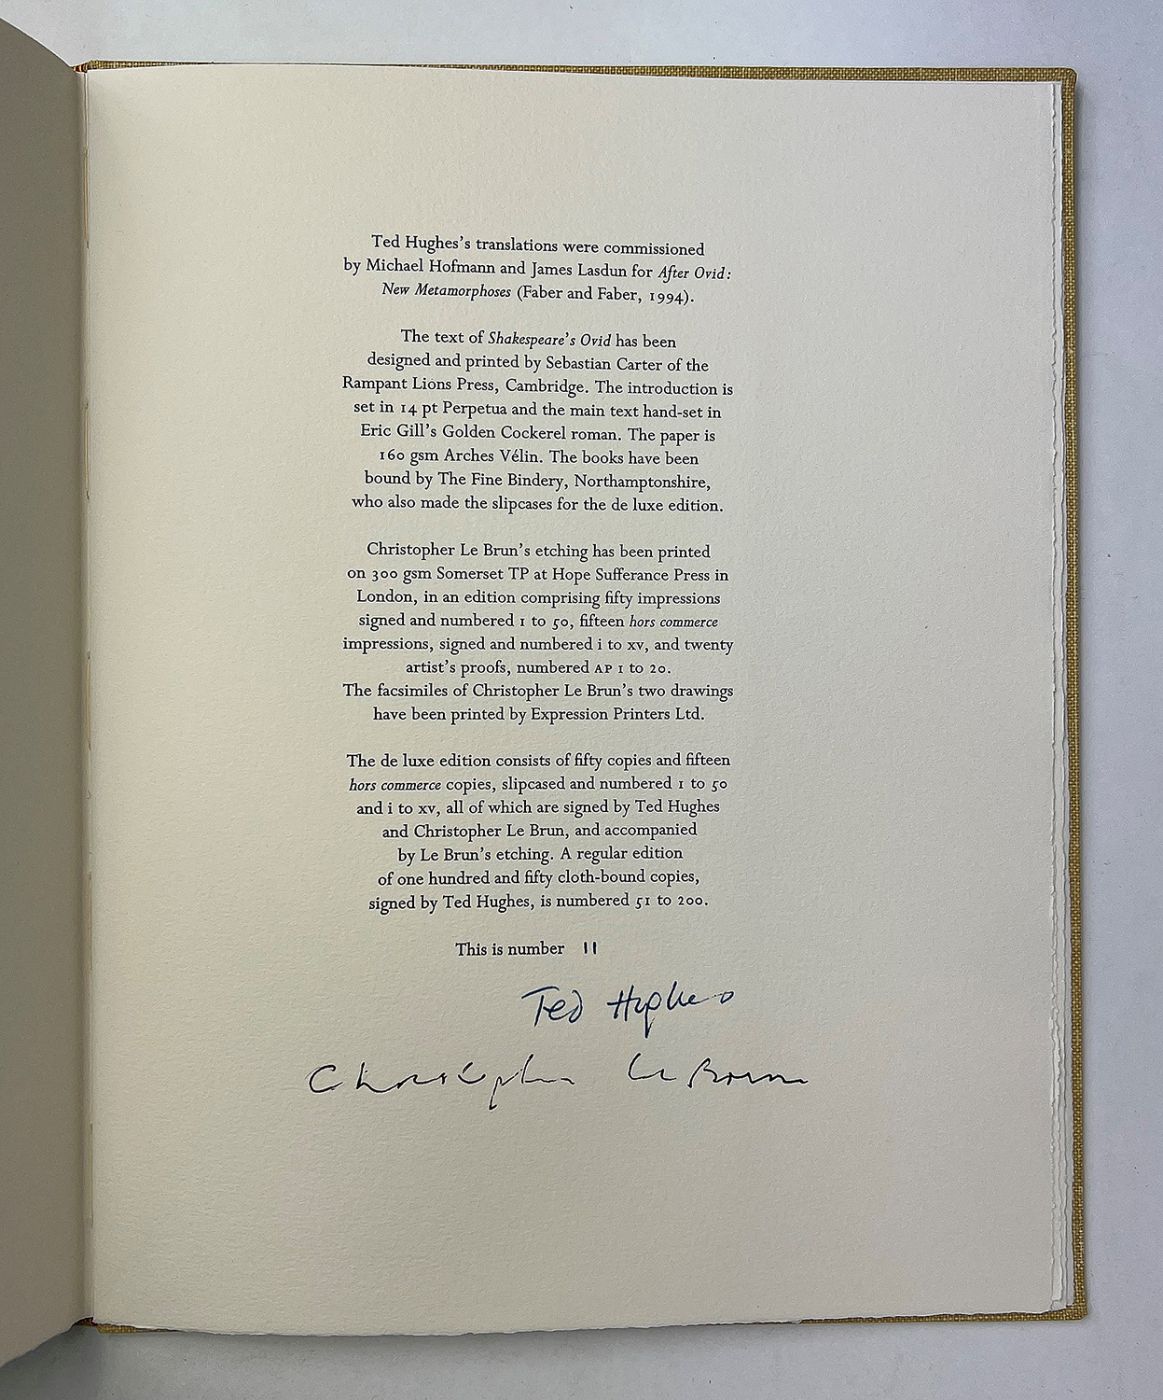 Ted Hughes's translations were commissioned
by Michael Hofmann and James Lasdun for After Ovid:
New Metamorphoses (Faber and Faber, 1994).
The text of Shakespeare's Ovid has been
designed and printed by Sebastian Carter of the
Rampant Lions Press, Cambridge. The introduction is
set in 14 pt Perpetua and the main text hand-set in
Eric Gill's Golden Cockerel roman. The paper is
160 gsm Arches Vélin. The books have been
bound by The Fine Bindery, Northamptonshire,
who also made the slipcases for the de luxe edition.
Christopher Le Brun's etching has been printed
on 300 gsm Somerset TP at Hope Sufferance Press in
London, in an edition comprising fifty impressions
signed and numbered 1 to 50, fifteen hors commerce
impressions, signed and numbered i to xv, and twenty
artist's proofs, numbered AP 1 to 20.
The facsimiles of Christopher Le Brun's two drawings
have been printed by Expression Printers Ltd.
The de luxe edition consists of fifty copies and fifteen
hors commerce copies, slipcased and numbered 1 to 50
and i to xv, all of which are signed by Ted Hughes
and Christopher Le Brun, and accompanied
by Le Brun's etching. A regular edition
of one hundred and fifty cloth-bound copies,
signed by Ted Hughes, is numbered 51 to 200.
This is number 11
Ted Hughes
Christopher Le Brun